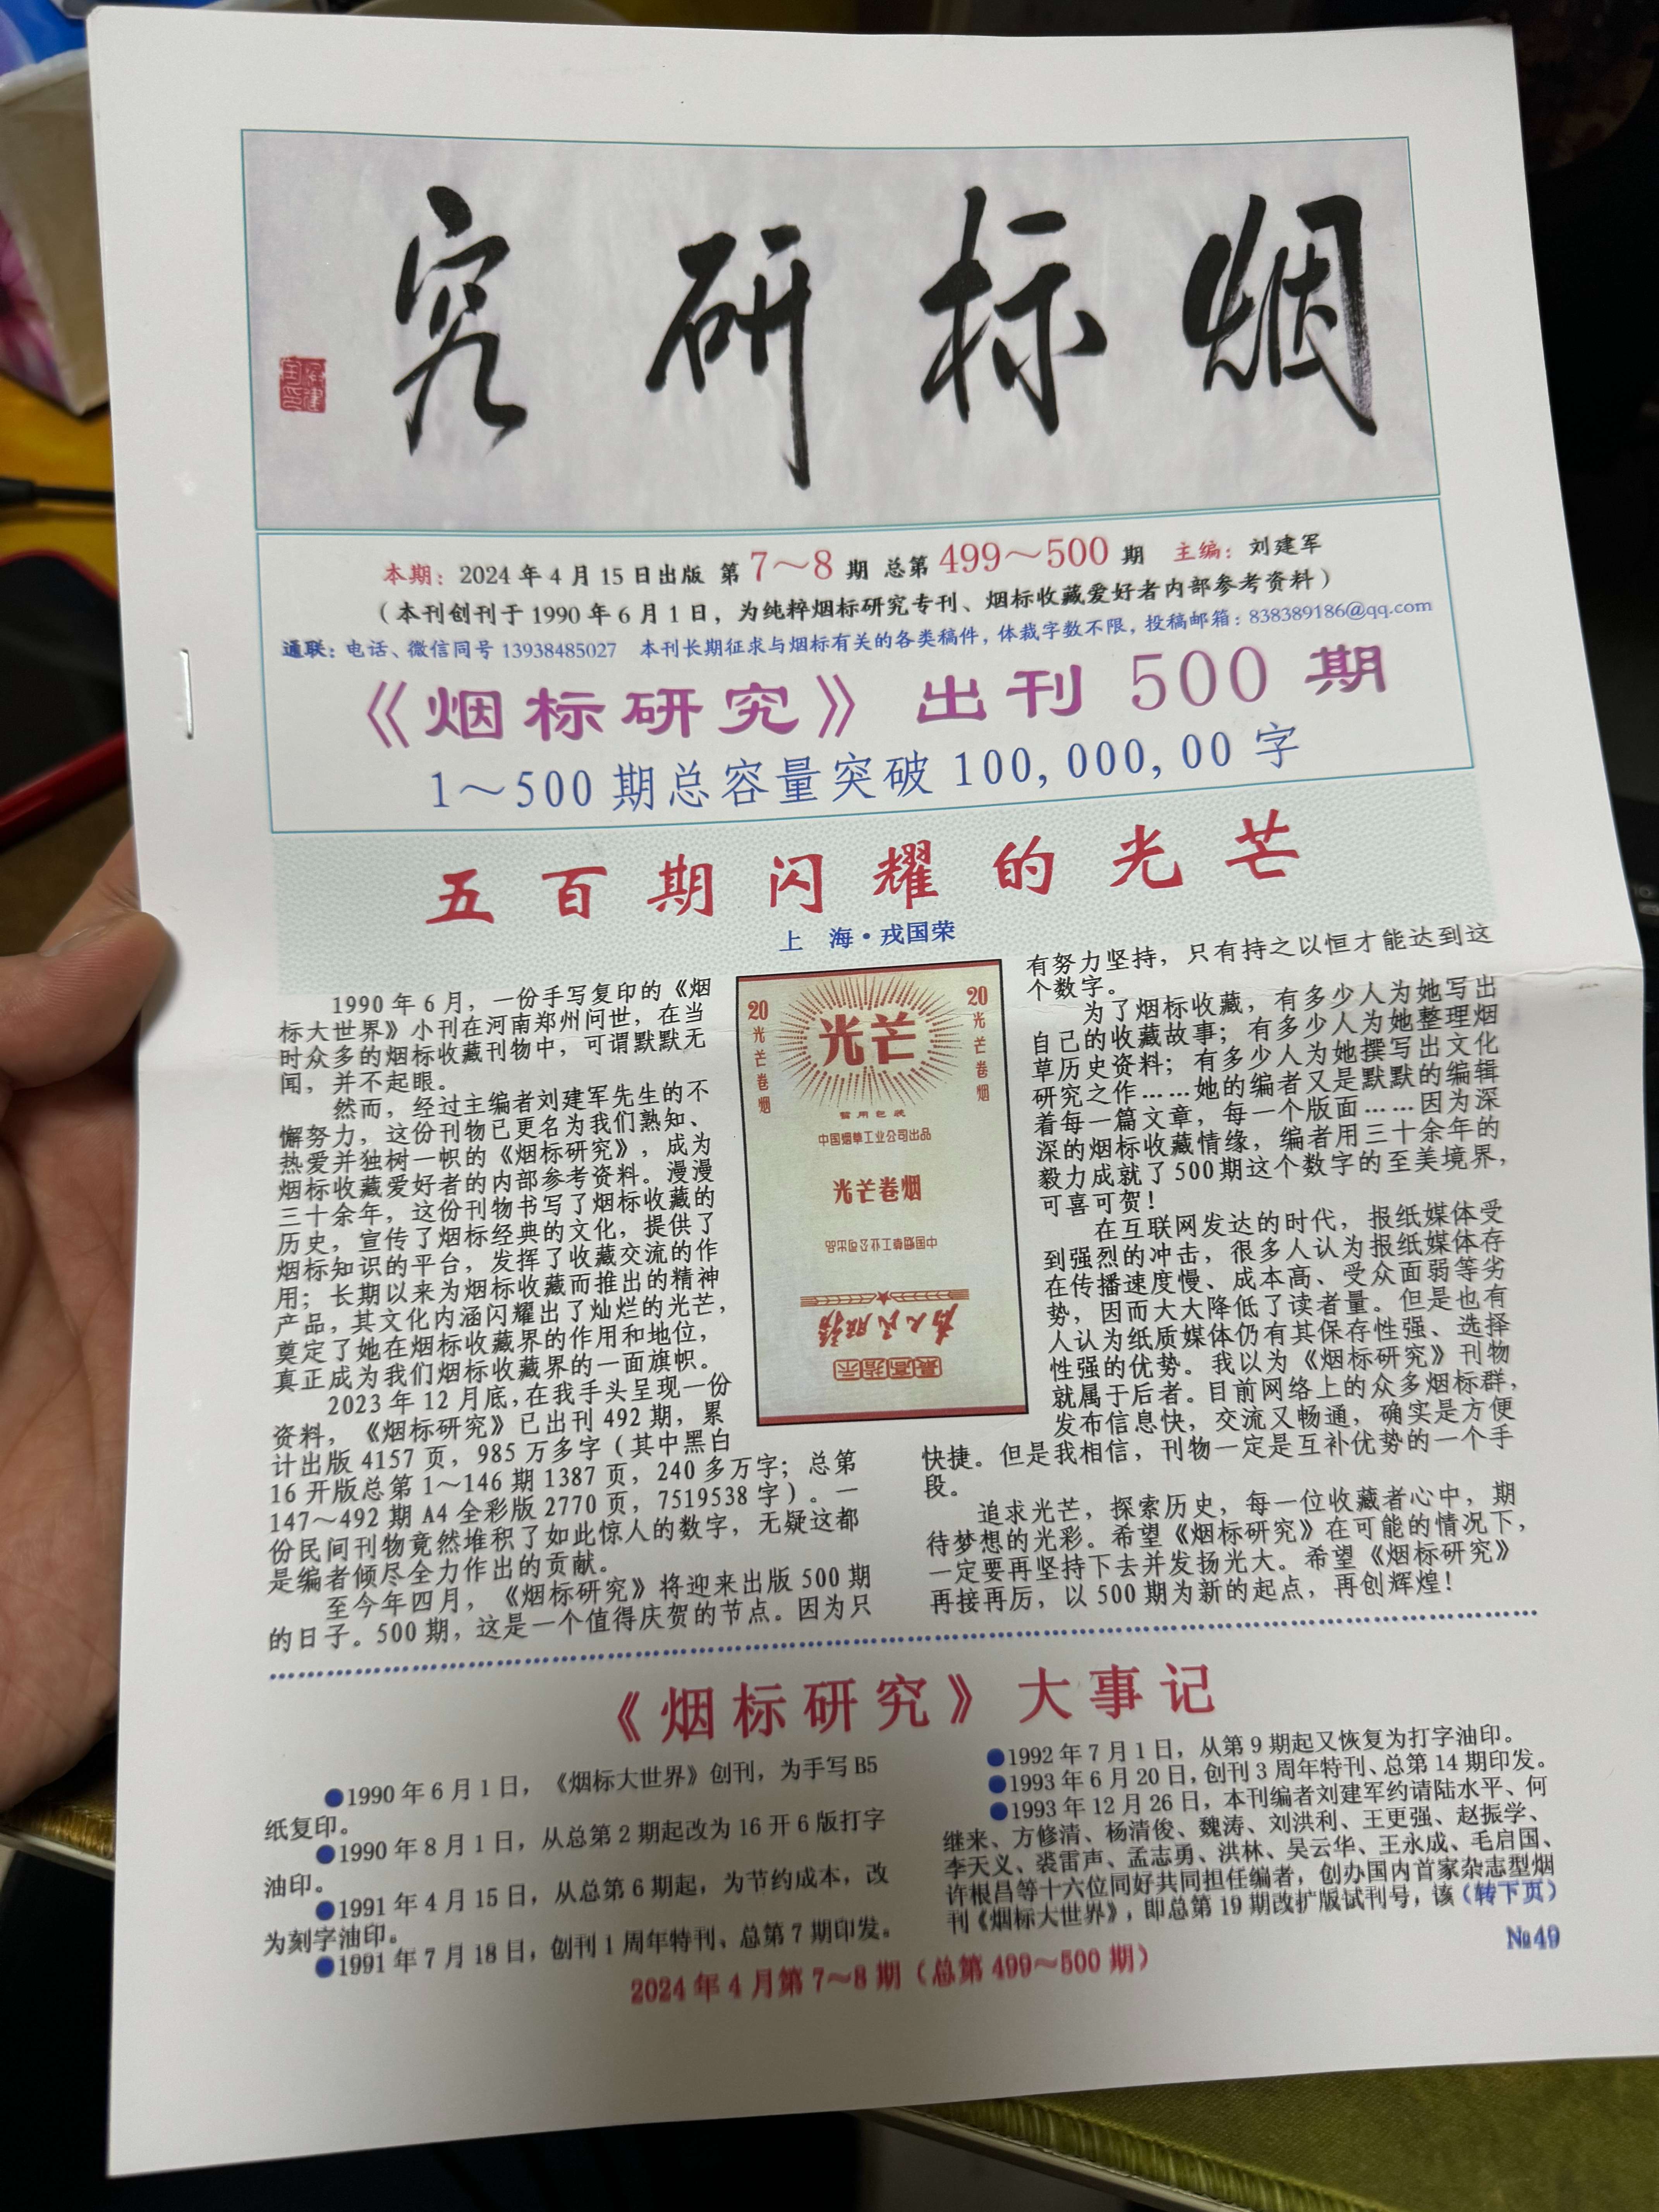 烟标研究
本期：2024年4月15日出版 第7～8期 总第499～500期 主编：刘建军
（本刊创刊于1990年6月1日，为纯粹烟标研究专刊、烟标收藏爱好者内部参考资料）
通联：电话、微信同号 13938485027 本刊长期征求与烟标有关的各类稿件，体裁字数不限，投稿邮箱：838389186@qq.com
《烟标研究》出刊500期
1～500期总容量突破100,000,00字
五百期闪耀的光芒
上 海·戎国荣
1990年6月，一份手写复印的《烟
标大世界》小刊在河南郑州问世，在当
时众多的烟标收藏刊物中，可谓默默无
闻，并不起眼。
然而，经过主编者刘建军先生的不
懈努力，这份刊物已更名为我们熟知、
热爱并独树一帜的《烟标研究》，成为
烟标收藏爱好者的内部参考资料。漫漫
三十余年，这份刊物书写了烟标收藏的
历史，宣传了烟标经典的文化，提供了
烟标知识的平台，发挥了收藏交流的作
用；长期以来为烟标收藏而推出的精神
产品，其文化内涵闪耀出了灿烂的光芒，
奠定了她在烟标收藏界的作用和地位，
真正成为我们烟标收藏界的一面旗帜。
2023年12月底，在我手头呈现一份
资料，《烟标研究》已出刊492期，累
计出版4157页，985万多字（其中黑白
16开版总第1～146期1387页，240多万字；总第
147～492期A4全彩版2770页，7519538字）。一
份民间刊物竟然堆积了如此惊人的数字，无疑这都
是编者倾尽全力作出的贡献。
至今年四月，《烟标研究》将迎来出版500期
的日子。500期，这是一个值得庆贺的节点。因为只
20
光芒卷烟
光芒
20
光芒卷烟
暂用包装
中国烟草工业公司出品
光芒卷烟
中国烟草工业公司出品
为人民服务
最高指示
有努力坚持，只有持之以恒才能达到这
个数字。
为了烟标收藏，有多少人为她写出
自己的收藏故事；有多少人为她整理烟
草历史资料；有多少人为她撰写出文化
研究之作……她的编者又是默默的编辑
着每一篇文章，每一个版面……因为深
深的烟标收藏情缘，编者用三十余年的
毅力成就了500期这个数字的至美境界，
可喜可贺！
在互联网发达的时代，报纸媒体受
到强烈的冲击，很多人认为报纸媒体存
在传播速度慢、成本高、受众面弱等劣
势，因而大大降低了读者量。但是也有
人认为纸质媒体仍有其保存性强、选择
性强的优势。我以为《烟标研究》刊物
就属于后者。目前网络上的众多烟标群，
发布信息快，交流又畅通，确实是方便
快捷。但是我相信，刊物一定是互补优势的一个手
段。
追求光芒，探索历史，每一位收藏者心中，期
待梦想的光彩。希望《烟标研究》在可能的情况下，
一定要再坚持下去并发扬光大。希望《烟标研究》
再接再厉，以500期为新的起点，再创辉煌！
《烟标研究》大事记
●1990年6月1日，《烟标大世界》创刊，为手写B5
纸复印。
●1990年8月1日，从总第2期起改为16开6版打字
油印。
●1991年4月15日，从总第6期起，为节约成本，改
为刻字油印。
●1991年7月18日，创刊1周年特刊、总第7期印发。
●1992年7月1日，从第9期起又恢复为打字油印。
●1993年6月20日，创刊3周年特刊、总第14期印发。
●1993年12月26日，本刊编者刘建军约请陆水平、何
继来、方修清、杨清俊、魏涛、刘洪利、王更强、赵振学、
李天义、裘雷声、孟志勇、洪林、吴云华、王永成、毛启国、
许根昌等十六位同好共同担任编者，创办国内首家杂志型烟
刊《烟标大世界》，即总第19期改扩版试刊号，该（转下页）
2024年4月第7～8期（总第499～500期）
№49